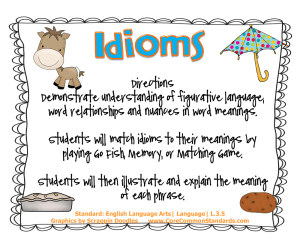 Idioms
Directions
Demonstrate understanding of figurative language,
word relationships and nuances in word meanings.
Students will match idioms to their meanings by
playing Go Fish, Memory, or Matching Game.
Students will then illustrate and explain the meaning
of each phrase.
Standard: English Language Arts| Language| L.3.5
Graphics by Scrappin Doodles www.CoreCommonStandards.com